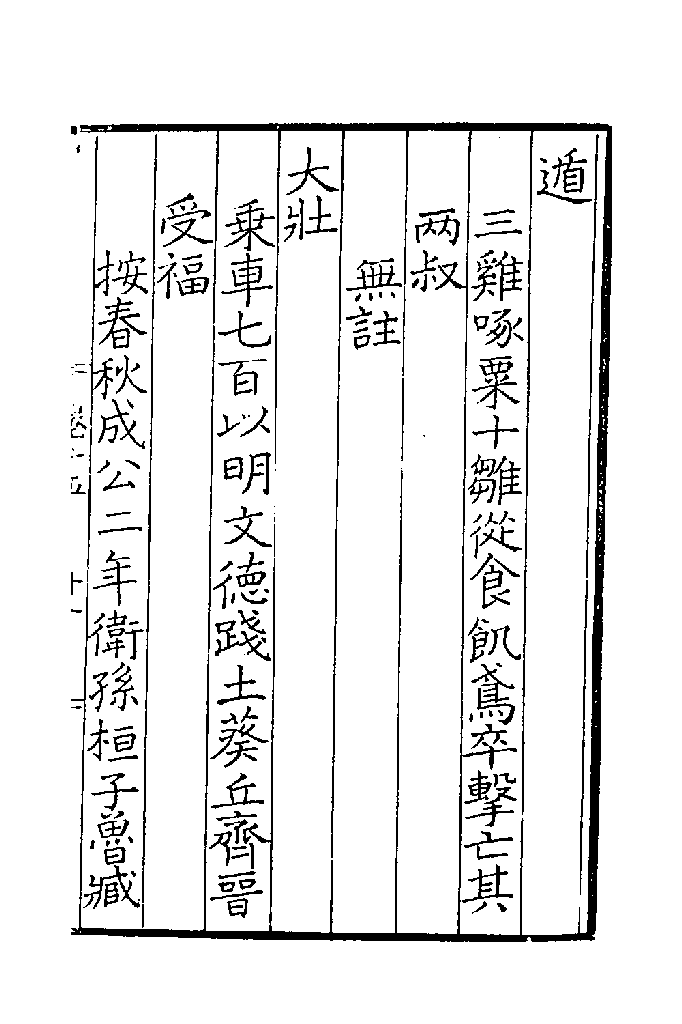 遁
三雞啄粟十雛從食飢鳶卒擊亡其
两叔
無註
大壯
乗車七百以明文德踐土葵丘齊晉
受福
按春秋成公二年衛孫桓子魯臧